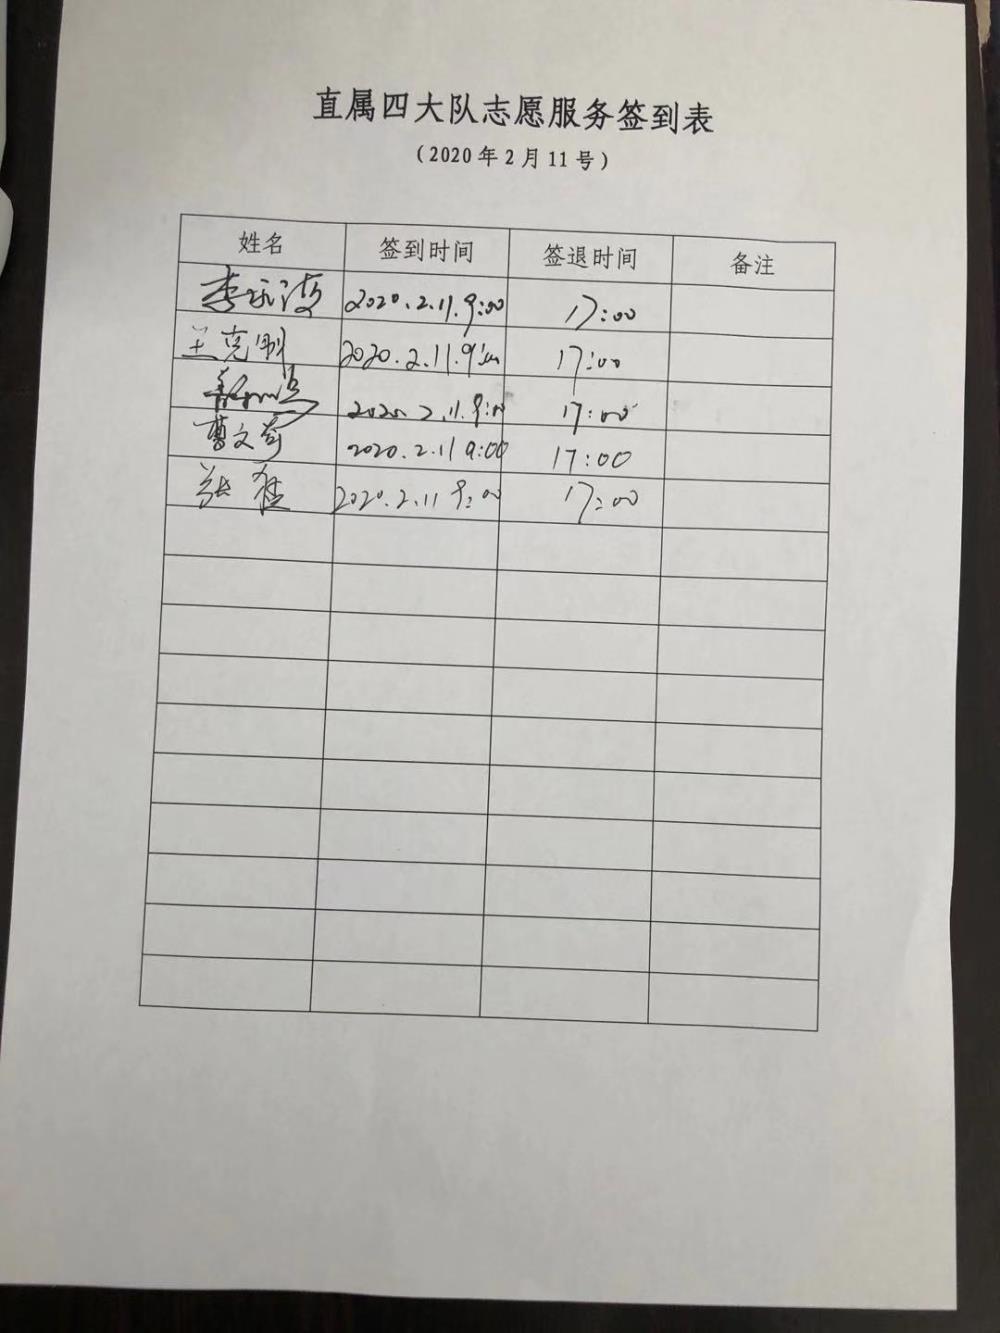 直属四大队志愿服务签到表
（2020年2月11号）
姓名 签到时间 签退时间 备注
2020.2.11.9:00 17:00
王克刚 2020.2.11.9:00 17:00
2020.2.11.9:00 17:00
曹文 2020.2.11 9:00 17:00
张 2020.2.11 9:00 17:00